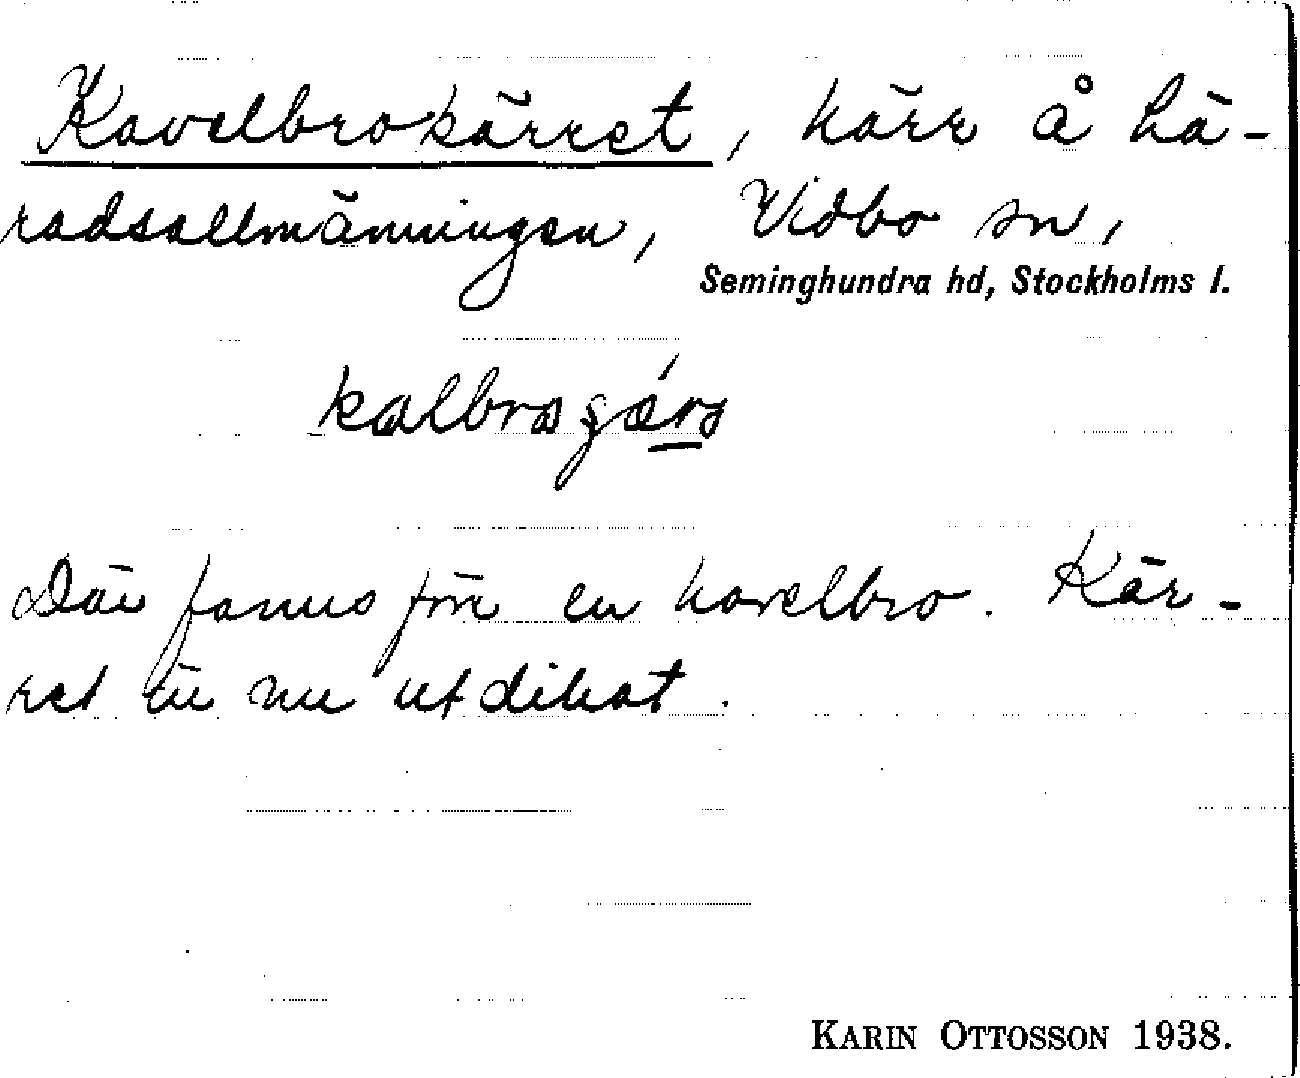 Kavelbrokärret, kärr å hä-
radsallmänningen, Vidbo sn,
Seminghundra hd, Stockholms l.
Där fanns förr en kavelbro. Kär-
ret är nu utdikat.
KARIN OTTOSSON 1938.